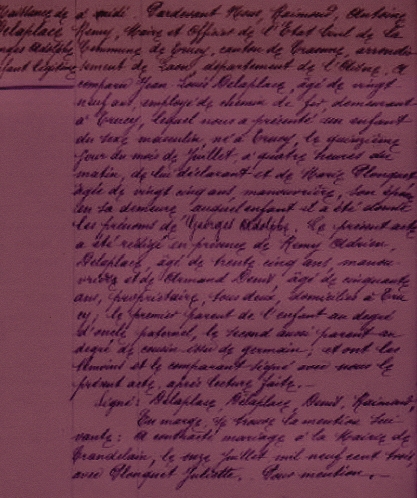 Naissance de
Delaplace
Georges Adolphe
enfant légitime
à midi. Pardevant Nous, Raimond, Antoine
Remy, Maire et Officier de l'Etat Civil de la
Commune de Trucy, canton de Craonne, arrondis
sement de Laon, département de l'Aisne, a
comparu Jean Louis Delaplace, âgé de vingt
neuf ans, employé de chemin de fer, demeurant
à Trucy, lequel nous a présenté un enfant
du sexe masculin, né à Trucy, le quinzième
jour du mois de Juillet, à quatre heures du
matin, de lui déclarant et de Marie Plonquet
âgée de vingt cinq ans, manouvrière, son épouse
en sa demeure auquel enfant il a été donné
les prénoms de Georges Adolphe. Le présent acte
a été rédigé en présence de Remy Adrien
Delaplace, âgé de trente cinq ans, manou-
vrier et de Armand Denil âgé de cinquante
ans, propriétaire, tous deux, domiciliés à Tru
cy; le premier parent de l'enfant au degré
d'oncle paternel, le second aussi parent au
degré de cousin issu de germain; et ont les
témoins et le comparant signé avec nous le
présent acte, après lecture faite. —
Signé: Delaplace, Delaplace, Denil, Raimond
En marge, se trouve la mention sui
vante: A contracté mariage à la Mairie de
Grandelain, le onze Juillet mil neuf cent trois
avec Plonquet Juliette. Pour mention. —